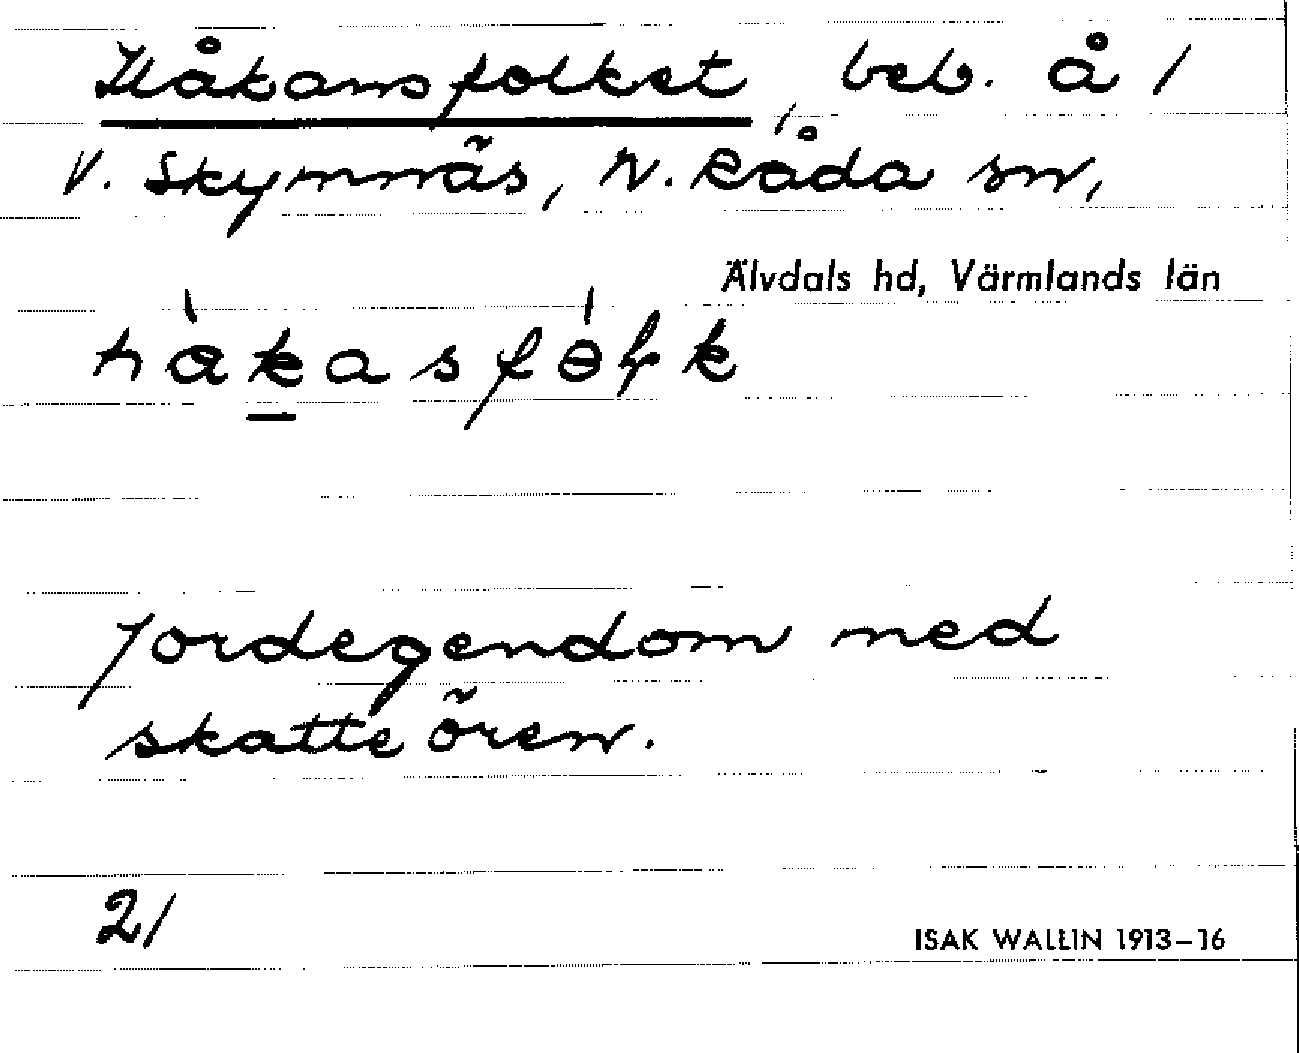 Håkansfolket, beb. å 1
V. Skymnäs, N. Råda sn,
Älvdals hd, Värmlands län
Jordegendom med
skatte ören.
21
ISAK WALLIN 1913–16